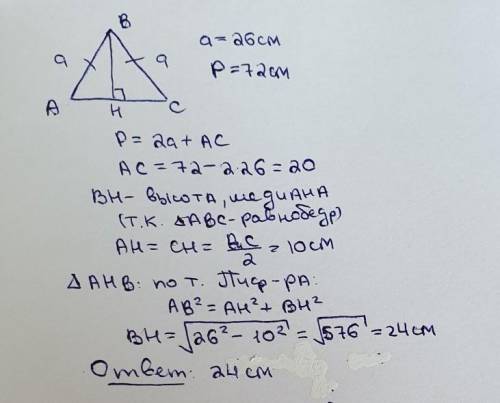 B
a = 26см
a
a
P = 72см
A
H
C
P = 2a + AC
AC = 72 - 2·26 = 20
BH - высота, медиана
(т.к. ΔABC - равнобедр)
AH = CH = AC/2 = 10см
ΔAHB: по т. Пиф-ра:
AB² = AH² + BH²
BH = √26² - 10² = √576 = 24см
Ответ: 24см